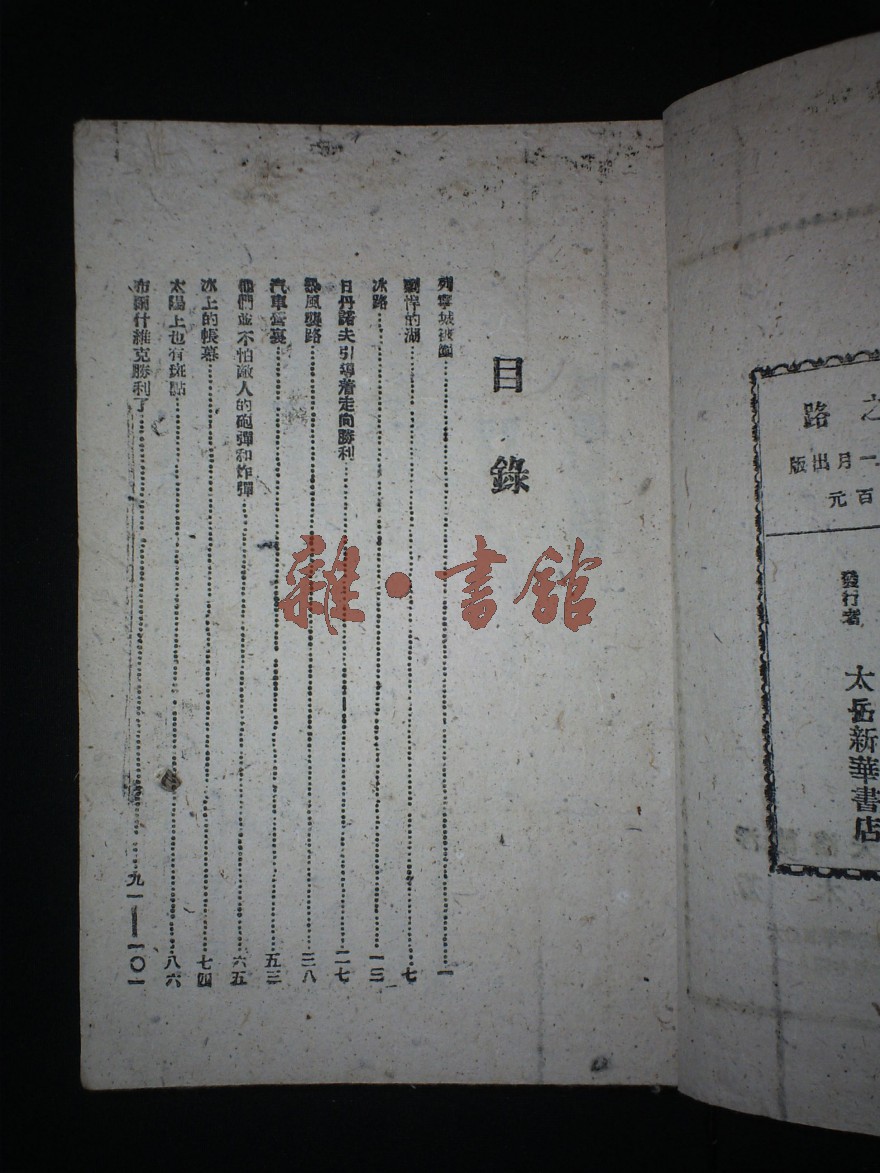 之路
一月出版
百元
發行者
太岳新華書店
目錄
列寧城被圍……一
剽悍的湖……七
冰路……一三
日丹諾夫引導着走向勝利……二七
暴風襲路……三八
汽車……五三
他們並不怕敵人的砲彈和炸彈……六五
冰上的帳幕……七四
太陽上也有斑點……八六
布爾什維克勝利了……九一——一〇一
雜·書館